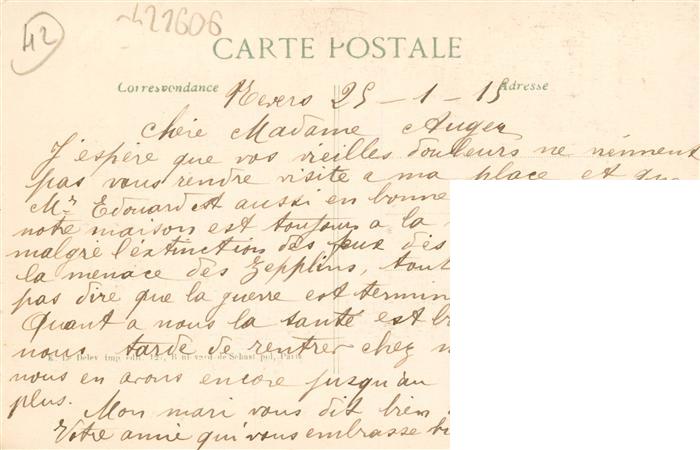 42
421606
CARTE POSTALE
Correspondance
Adresse
Nevers 25-1-15
Chére Madame Auger
J'espère que vos vieilles douleurs ne viennent
pas vous rendre visite a ma place et que
Mr Edouard est aussi en bonne
notre maison est toujours a la
malgré l'éxtinction des feux dès
la menace des Zepplins, tout
pas dire que la guerre est termin
Quant a nous la santé est
nous tarde de rentrer chez
nous en avons encore jusqu'au
plus.
Mon mari vous dit bien
Votre amie qui vous embrasse
Deley imp
Paris